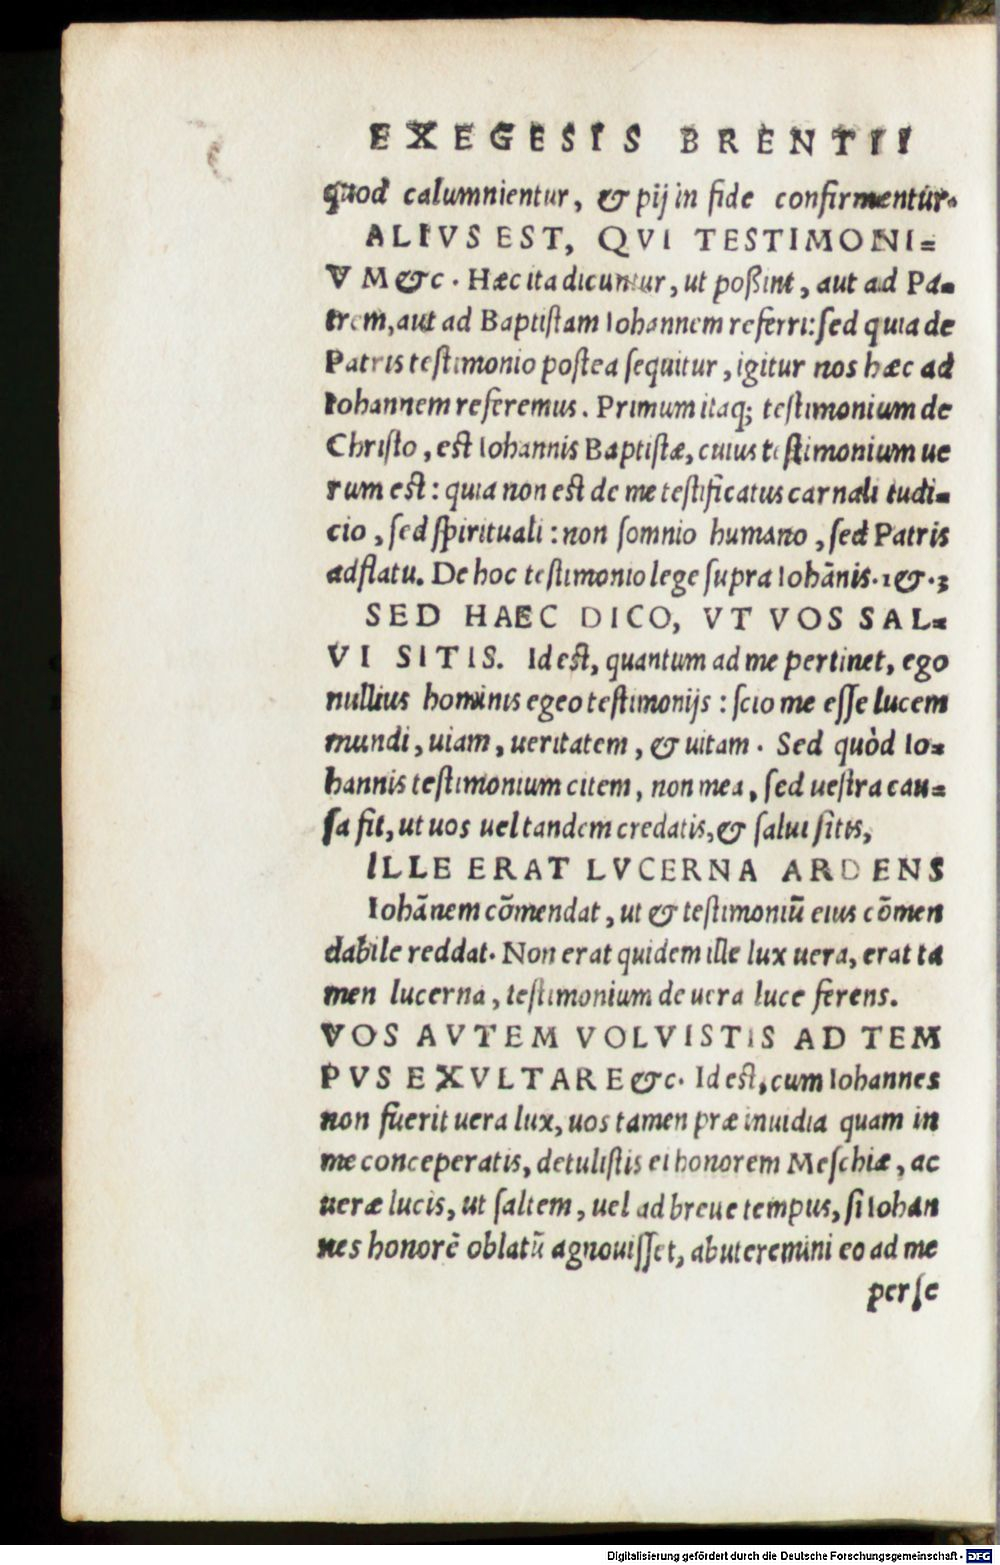 EXEGESIS BRENTII
quod calumnientur, & pij in fide confirmentur.
ALIVS EST, QVI TESTIMONI=
VM &c. Hæc ita dicuntur, ut poßint, aut ad Pa=
trem, aut ad Baptiſtam Iohannem referri: ſed quia de
Patris teſtimonio poſtea ſequitur, igitur nos hæc ad
Iohannem referemus. Primum itaq; teſtimonium de
Chriſto, eſt Iohannis Baptiſtæ, cuius teſtimonium ue
rum eſt: quia non eſt de me teſtificatus carnali iudi=
cio, ſed ſpirituali: non ſomnio humano, ſed Patris
adflatu. De hoc teſtimonio lege ſupra Iohãnis. 1 &. 3
SED HAEC DICO, VT VOS SAL=
VI SITIS. Id eſt, quantum ad me pertinet, ego
nullius hominis egeo teſtimonijs: ſcio me eſſe lucem
mundi, uiam, ueritatem, & uitam. Sed quòd Io=
hannis teſtimonium citem, non mea, ſed ueſtra cau=
ſa fit, ut uos uel tandem credatis, & ſalui ſitis,
ILLE ERAT LVCERNA ARDENS
Iohãnem cõmendat, ut & teſtimoniũ eius cõmen
dabile reddat. Non erat quidem ille lux uera, erat ta
men lucerna, teſtimonium de uera luce ferens.
VOS AVTEM VOLVISTIS AD TEM
PVS EXVLTARE &c. Id eſt, cum Iohannes
non fuerit uera lux, uos tamen præ inuidia quam in
me conceperatis, detuliſtis ei honorem Meſchiæ, ac
ueræ lucis, ut ſaltem, uel ad breue tempus, ſi Iohan
nes honorẽ oblatũ agnouiſſet, abuteremini eo ad me
perſe
Digitalisierung gefördert durch die Deutsche Forschungsgemeinschaft - DFG